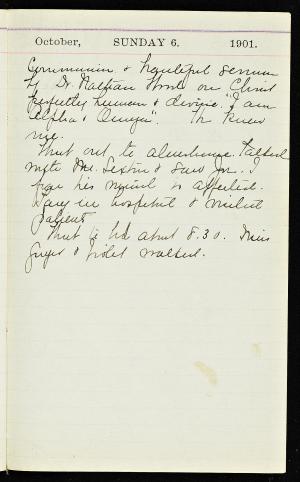 October, SUNDAY 6. 1901.
Communion & beautiful sermon
by Dr. Nathan on Christ
perfectly human & divine. "I am
Alpha & Omega". He knew
me.
Went out to almshouse. Talked
with Mr. Sexton & saw Jr. I
fear his mind is affected.
in hospital & violent
patient.
Went to bed about 8.30. Miss
& Violet walked.